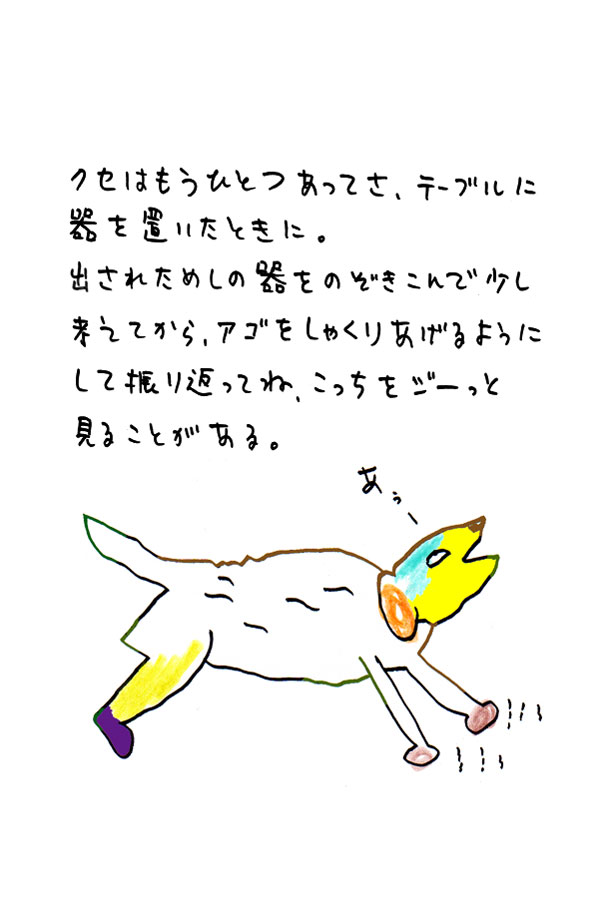 クセはもうひとつあってさ、テーブルに
器を置いたときに。
出されためしの器をのぞきこんで少し
考えてから、アゴをしゃくりあげるように
して振り返ってね、こっちをジーっと
見ることがある。
あぅー